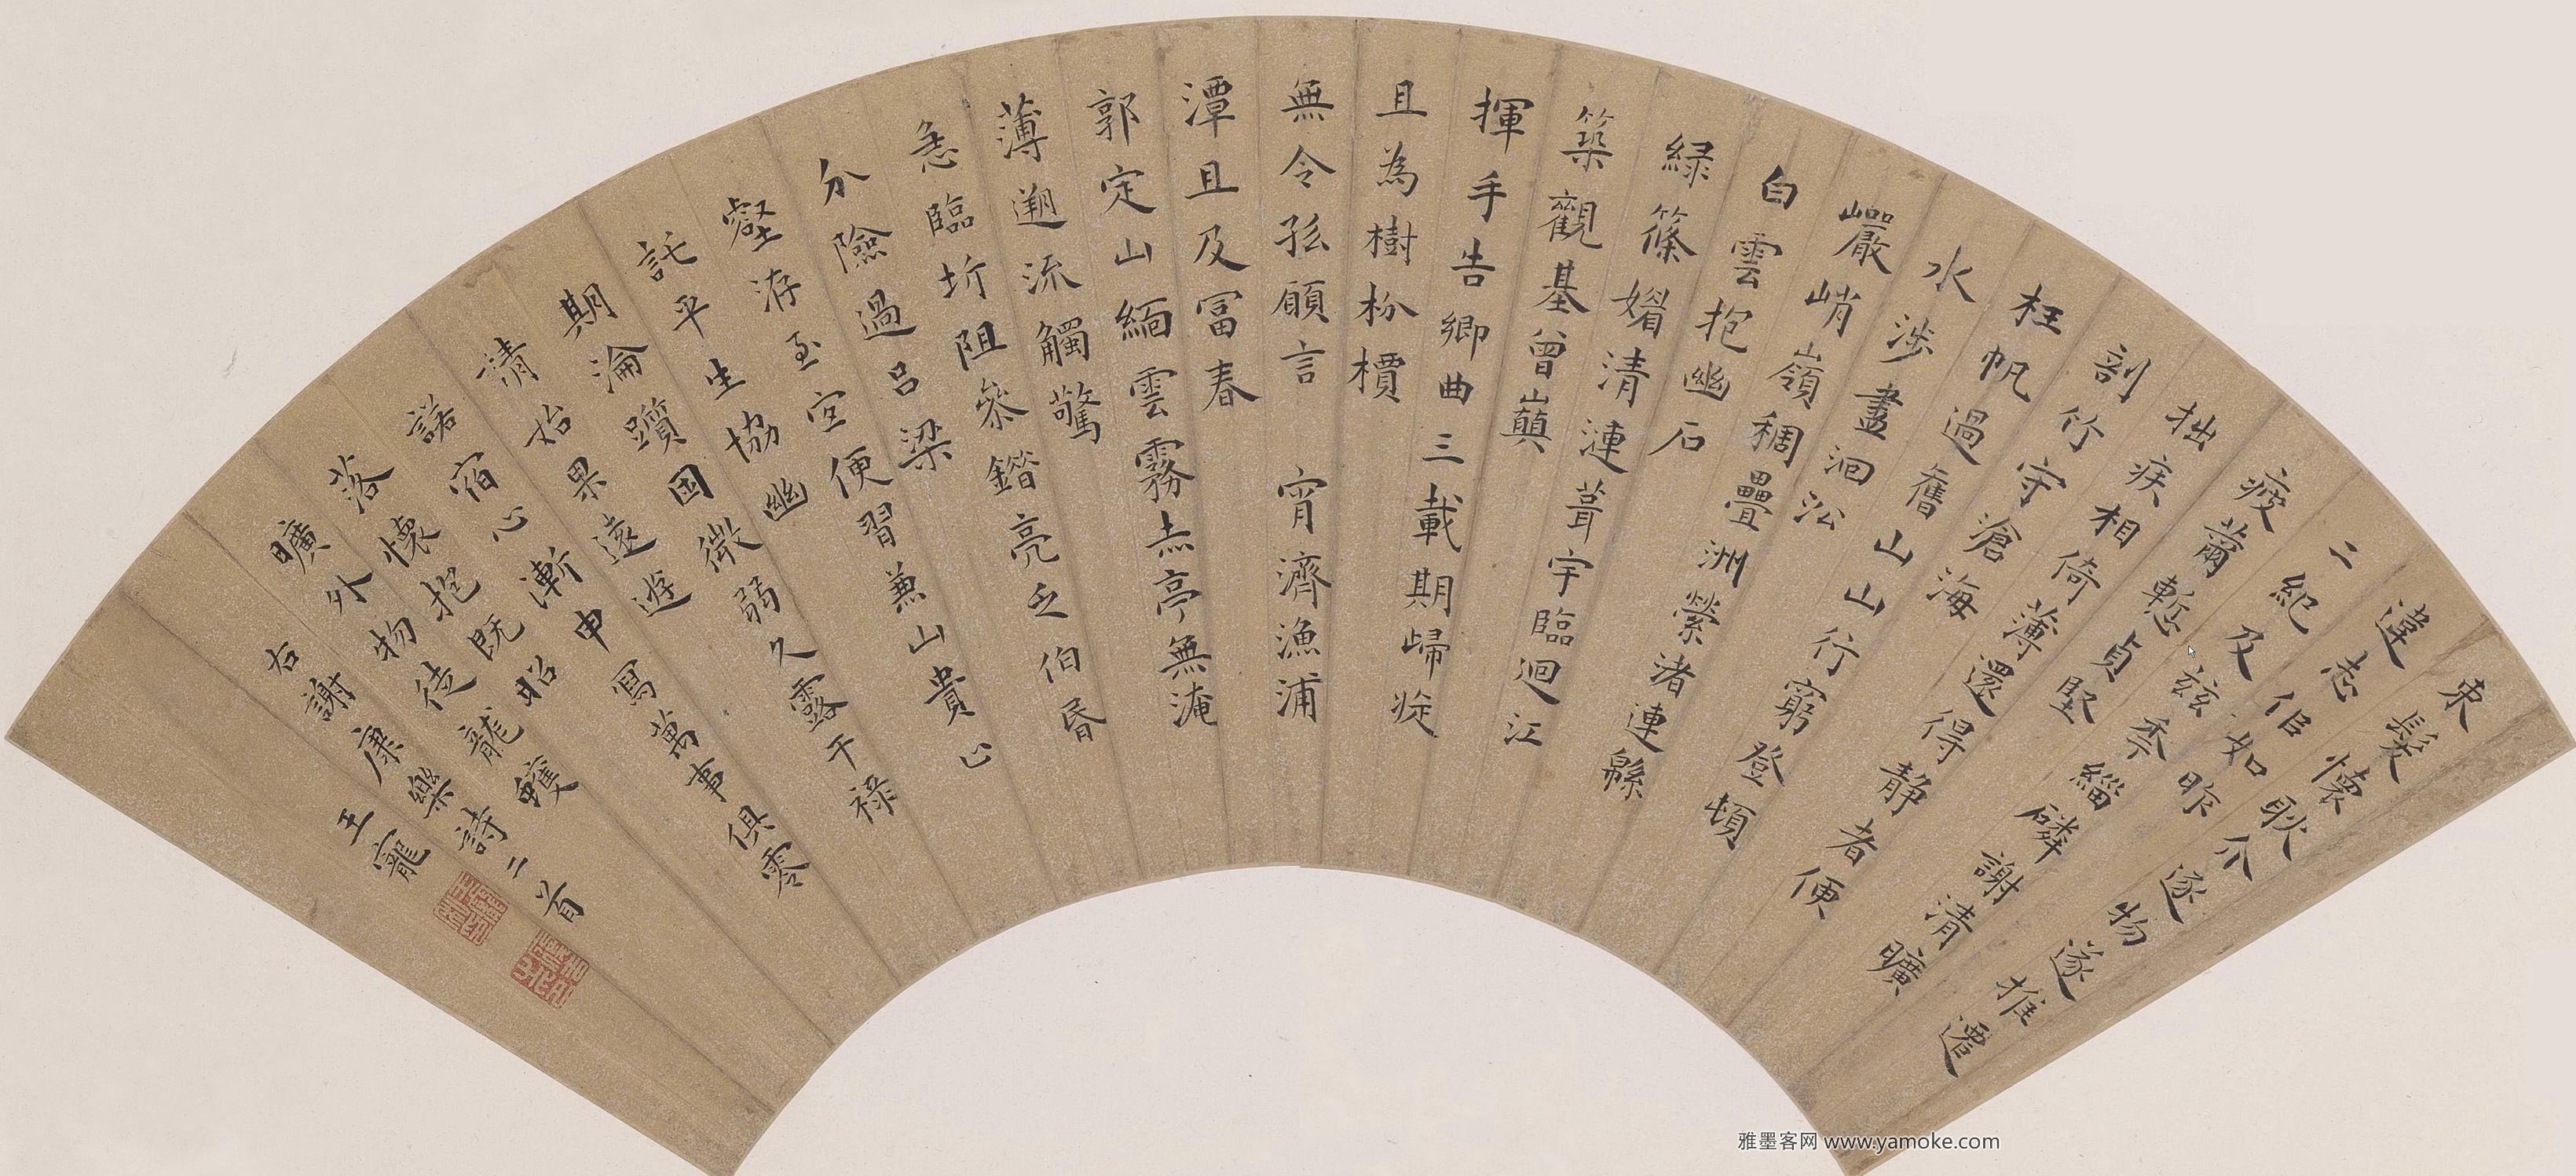 束髮懷耿介逐物遂推遷
違志佀如昨
二紀及茲秊緇磷謝清曠
疲薾慙貞堅
拙疾相倚薄還得靜者便
剖竹守滄海
枉帆過舊山山行窮登頓
水涉盡洄㳂
巖峭嶺稠疊洲縈渚連緜
白雲抱幽石
綠篠媚清漣葺宇臨迴江
築觀基曾巔
揮手告鄉曲三載期歸旋
且為樹枌檟
無令孤願言 宵濟漁浦
潭旦及富春
郭定山緬雲霧赤亭無淹
薄遡流觸驚
急臨圻阻參錯亮乏伯昏
分險過呂梁
壑洊至宜便習兼山貴止
託平生協幽
期淪躓困微弱久露干祿
請始果遠遊
諾宿心漸申寫萬事俱零
落懷抱既昭
曠外物徒龍蠖
右謝康樂詩二首
王寵
雅墨客网 www.yamoke.com